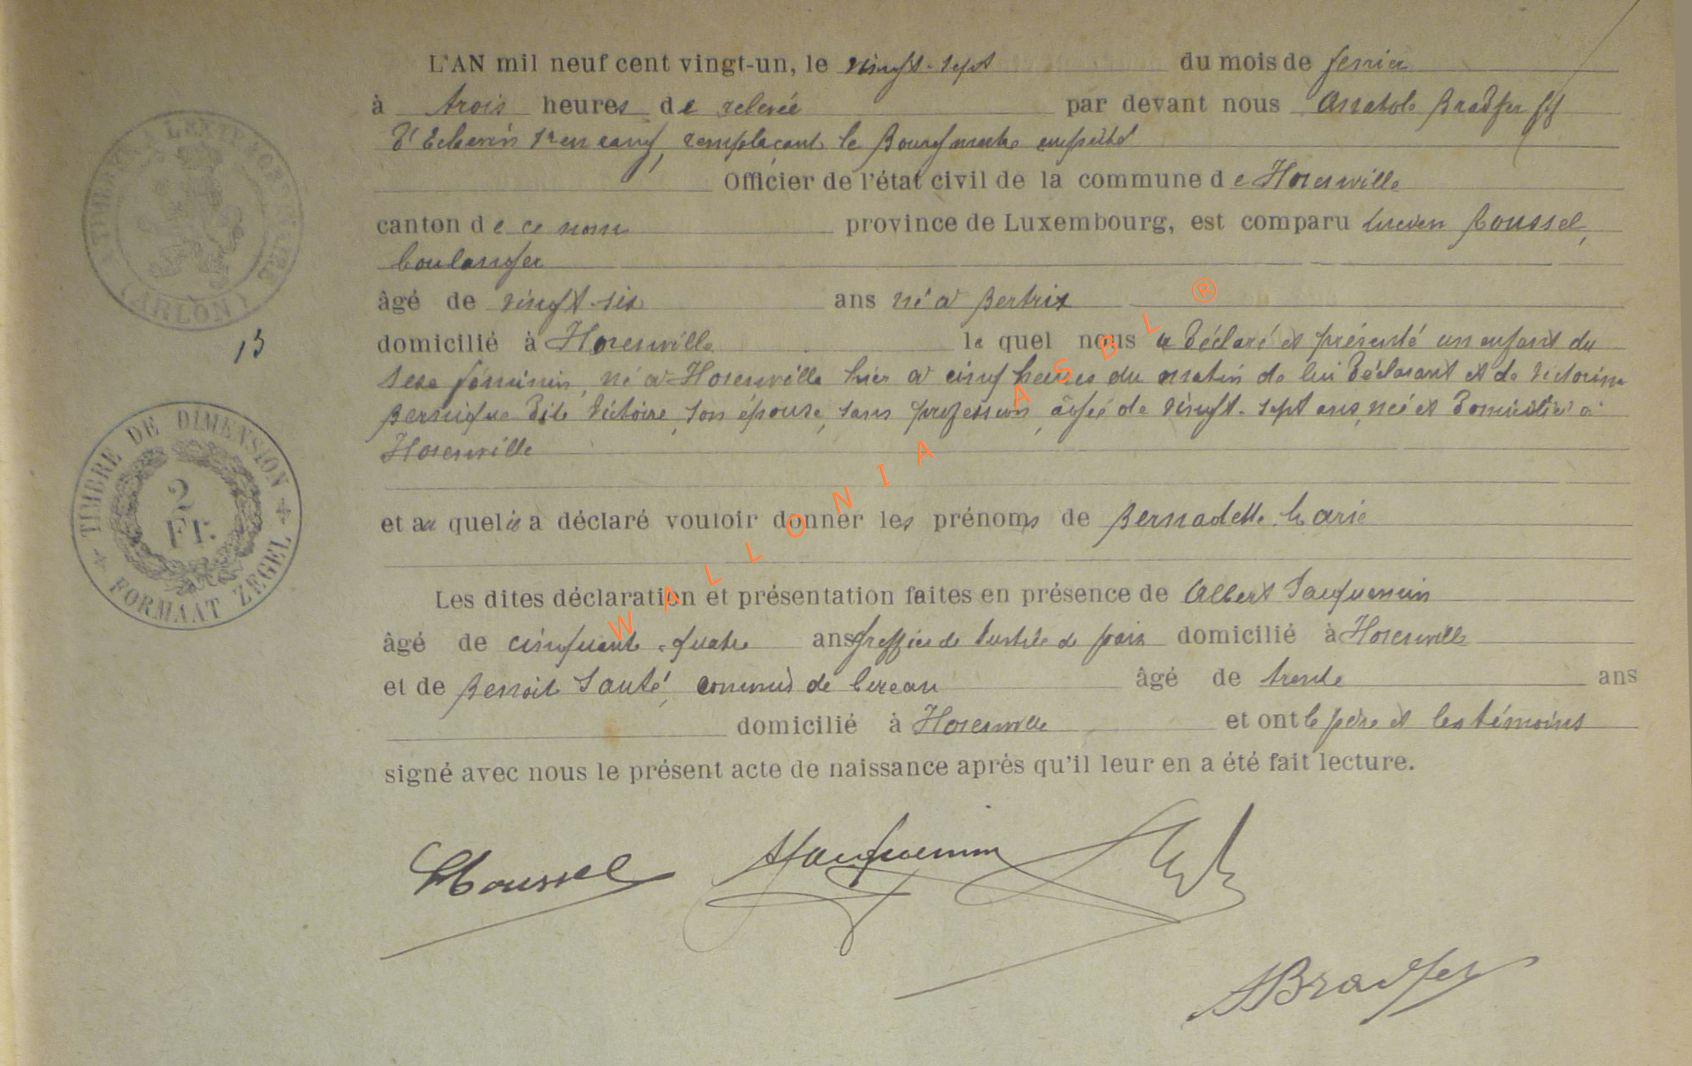 L'AN mil neuf cent vingt-un, le vingt-sept du mois de fevrier
à trois heures de relevée par devant nous Anatole Bradfer ff
d'Echevin 1er en rang, remplaçant le Bourgmestre empêché
Officier de l'état civil de la commune de Florenville
canton de ce nom province de Luxembourg, est comparu Lucien Roussel,
boulanger
âgé de vingt-six ans né à Bertrix
domicilié à Florenville le quel nous a déclaré et présenté un enfant du
sexe féminin, né à Florenville hier à cinq heures du matin de lui déclarant et de Victorine
dite Victoire, son épouse, sans profession, âgée de vingt-sept ans, née et domiciliée à
Florenville
et au quel il a déclaré vouloir donner les prénoms de Bernadette Marie
Les dites déclaration et présentation faites en présence de Albert Jacquemin
âgé de cinquante-quatre ans greffier de Justice de paix domicilié à Florenville
et de Benoit commis de bureau âgé de trente ans
domicilié à Florenville et ont le père et les témoins
signé avec nous le présent acte de naissance après qu'il leur en a été fait lecture.
LRoussel AJacquemin
ABradfer
(ARLON)
13
TIMBRE DE DIMENSION
2
Fr.
FORMAAT ZEGEL
WALLONIA ASBL ®